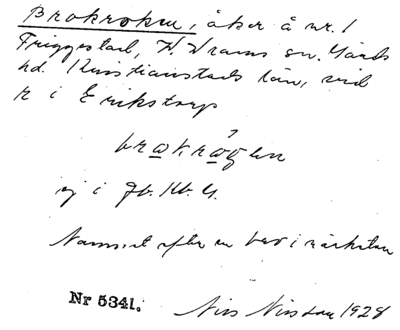 Brokroken, åker å nr. 1
Friggestad, V. Vrams sn. Gärds
hd. Kristianstads län, vid
R i Erikstorp
ej i Jb. Kb. G.
Namnet efter en bro i närheten
Nr 5341. Nils Nilsson 1928